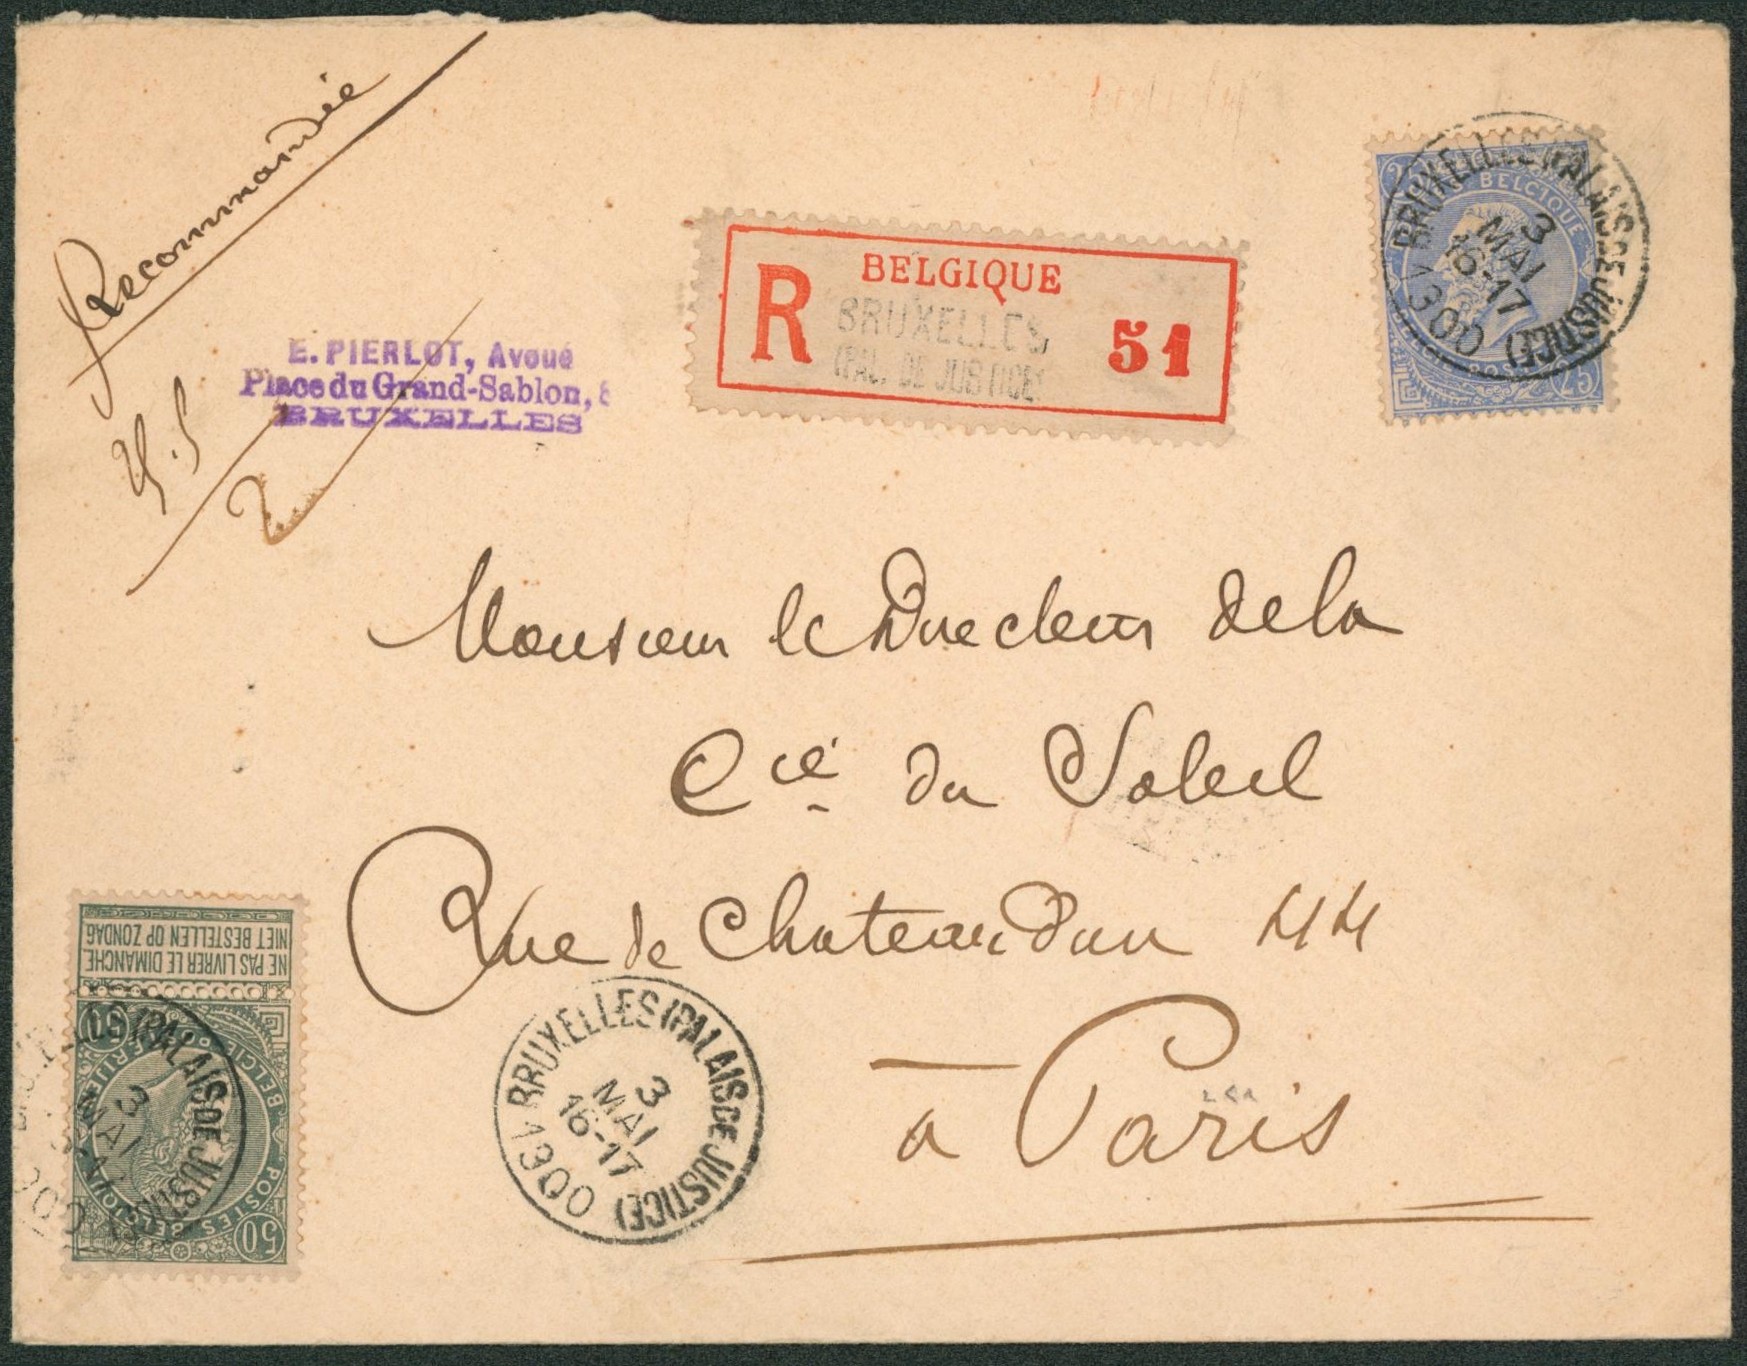 Recommandée
E. PIERLOT, Avoué
Place du Grand-Sablon,
BRUXELLES
2
BELGIQUE
R
BRUXELLES
(PAL. DE JUSTICE)
51
BELGIQUE
25
BRUXELLES (PALAIS DE JUSTICE)
3
MAI
16-17
1900
Monsieur le Directeur de la
Cie du Soleil
Rue de Chateaudun 44
à Paris
NE PAS LIVRER LE DIMANCHE
NIET BESTELLEN OP ZONDAG
POSTES BELGIQUE
50
50
BRUXELLES (PALAIS DE JUSTICE)
3
MAI
BRUXELLES (PALAIS DE JUSTICE)
3
MAI
16-17
1900